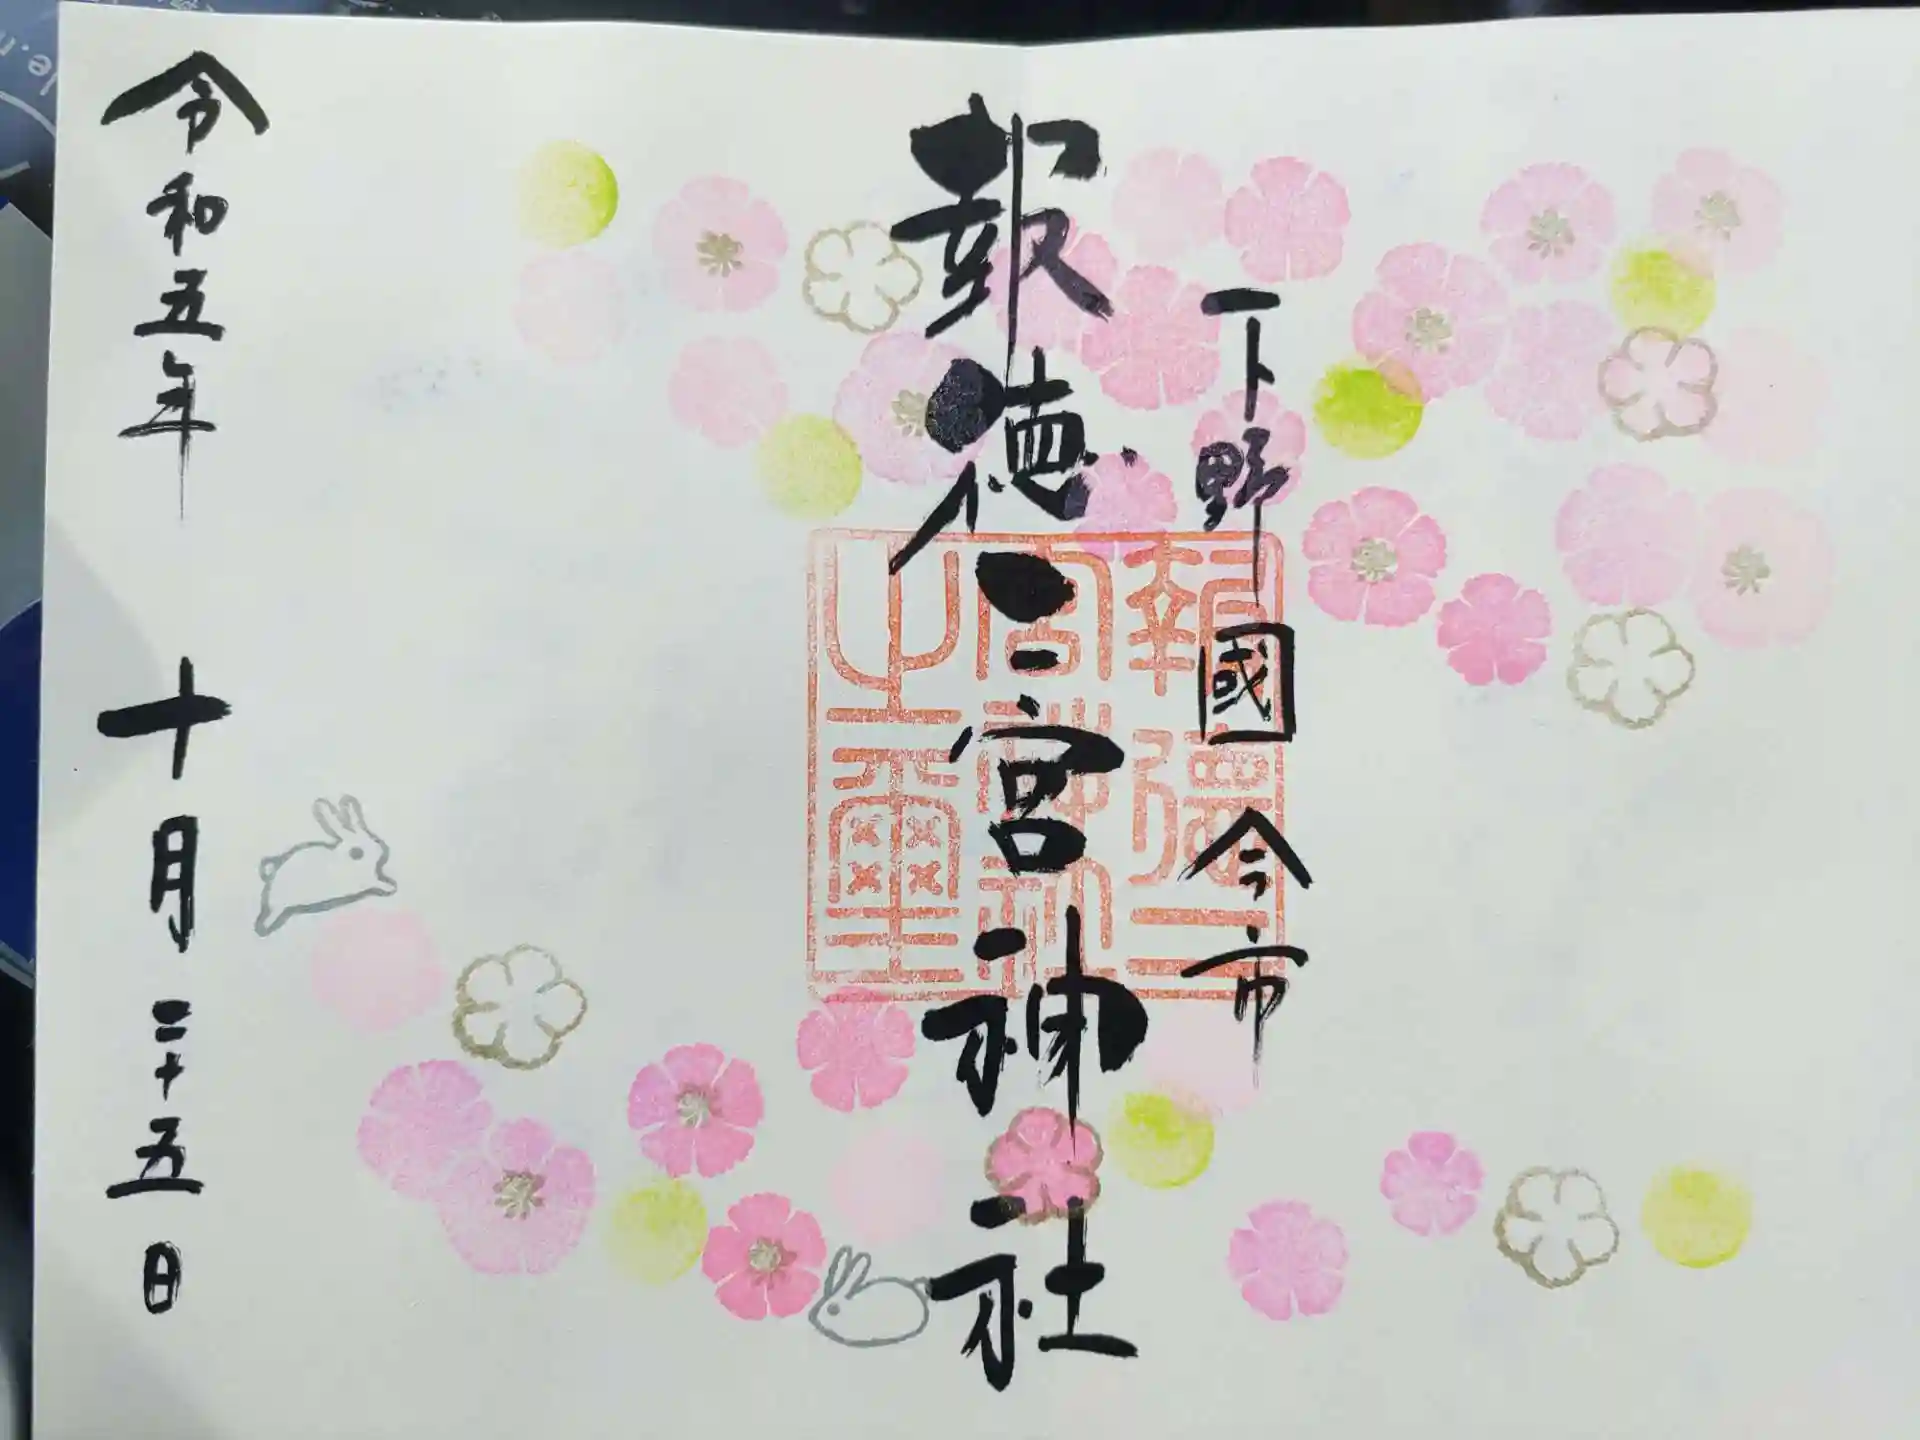 下野國今市
報徳二宮神社
報徳二宮神社之璽
令和五年十月二十五日